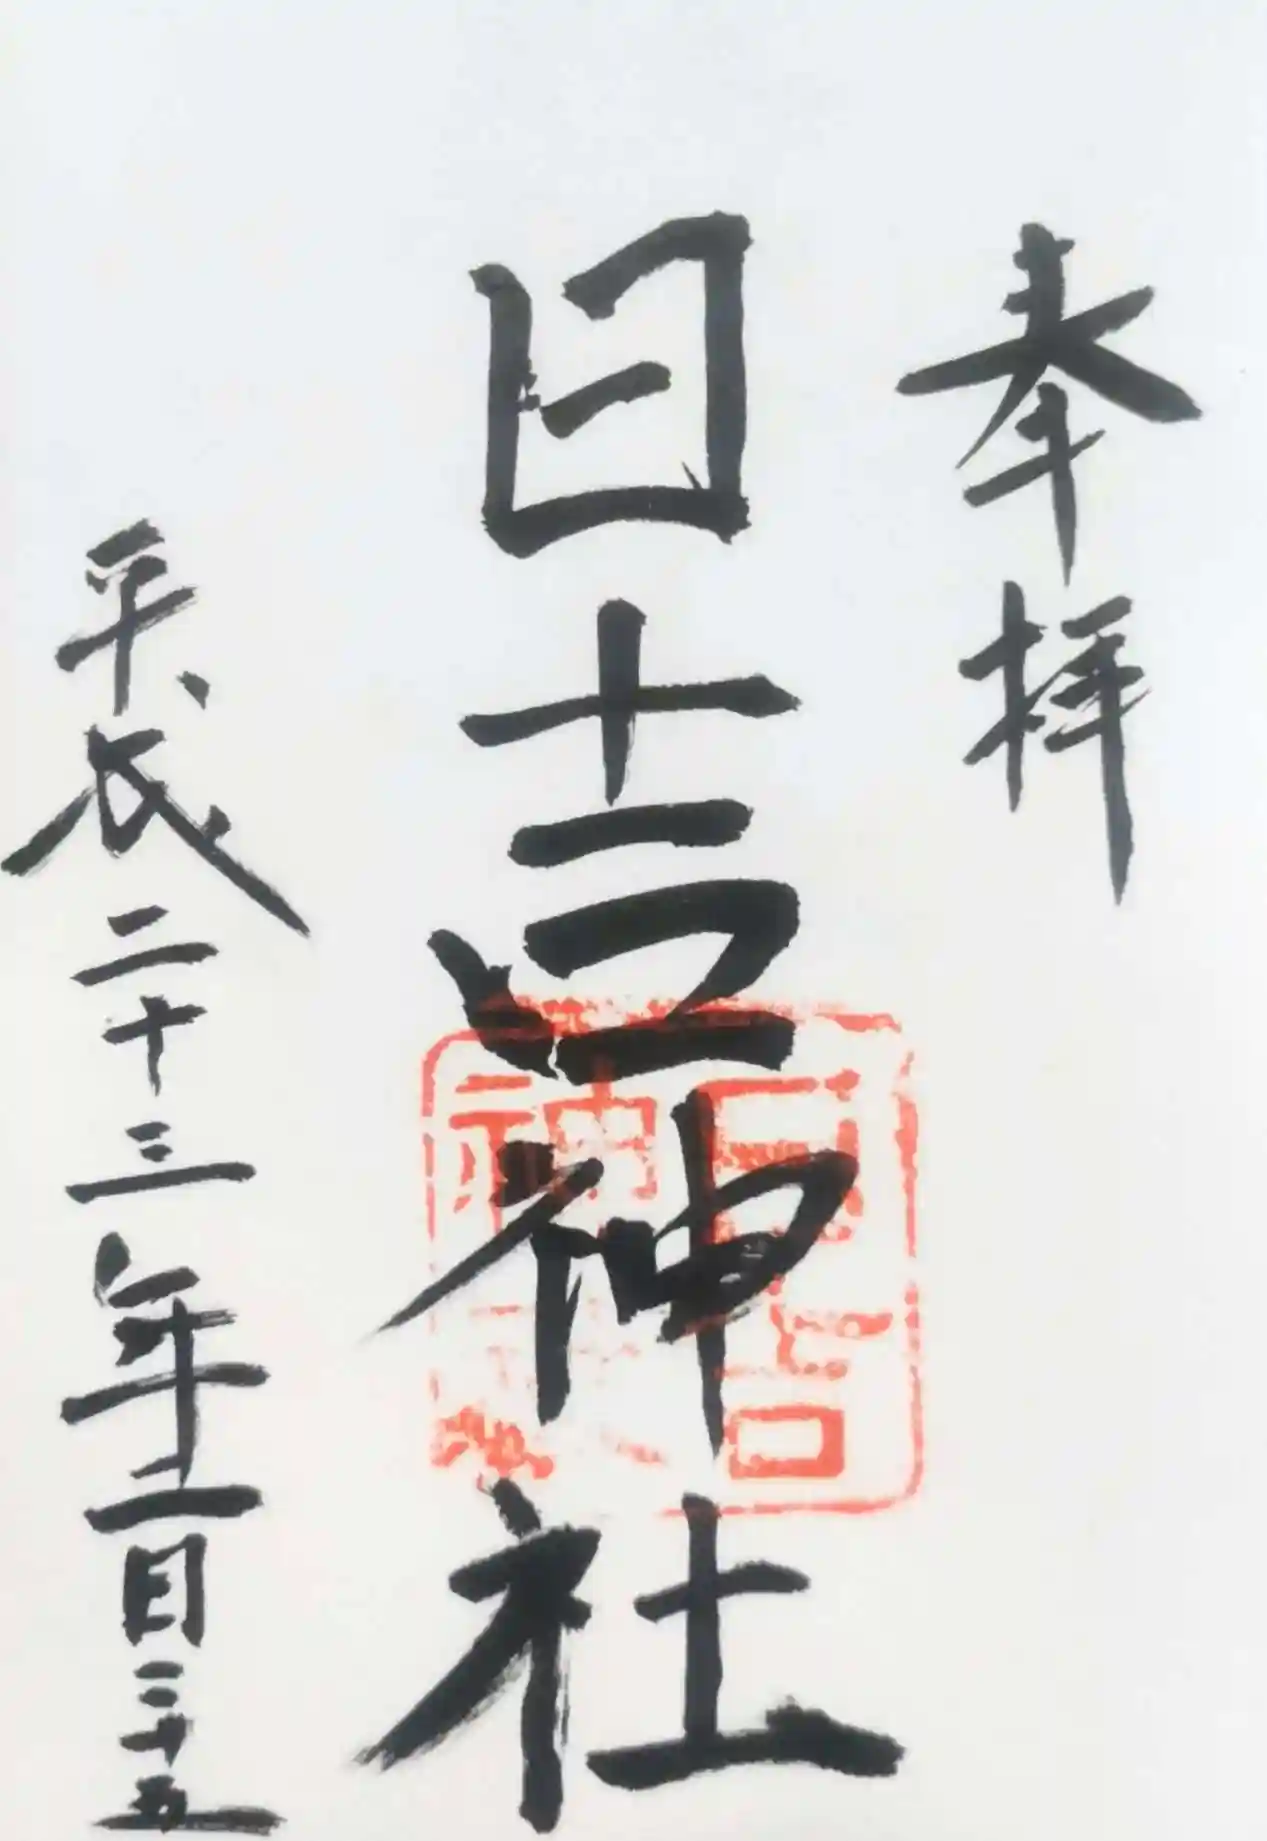 奉拝
日吉神社
平成二十三年二月二十五
日吉
神